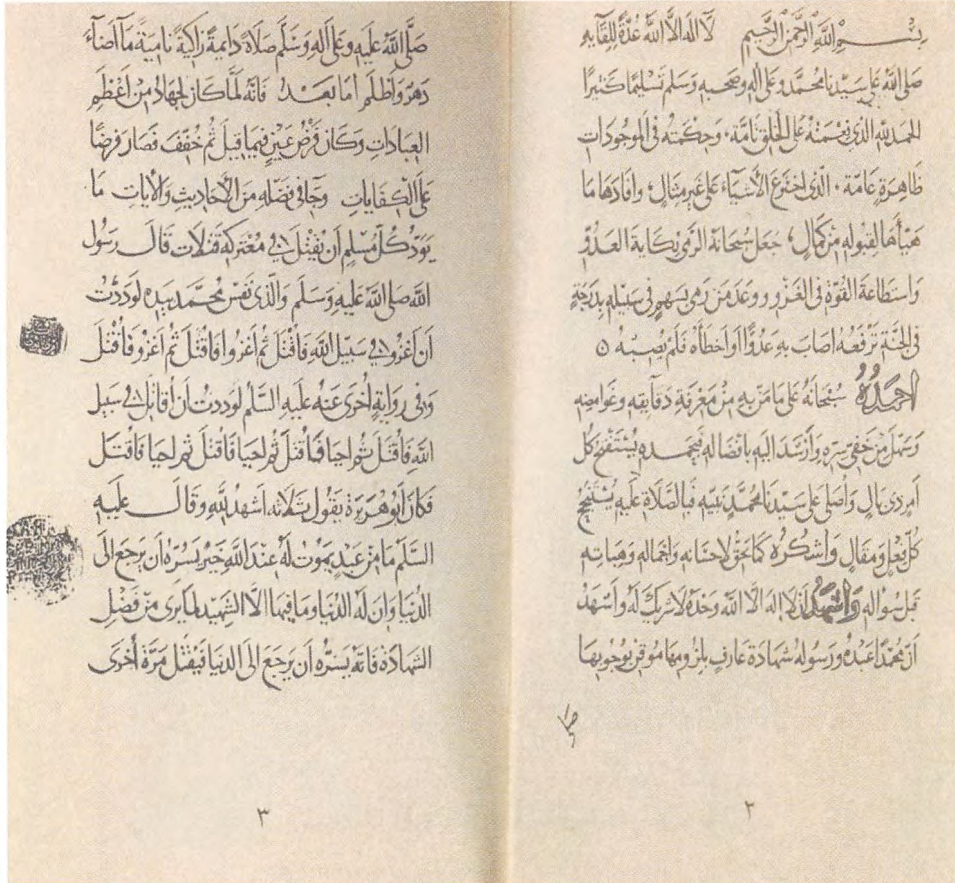 بسم الله الرحمن الرحيم لا اله الا الله عدة للقايه
صلى الله على سيدنا محمد وعلى اله وصحبه وسلم تسليما كثيرا
الحمد لله الذى نعمته على الخلق تامة، وحكمته فى الموجودات
ظاهرة عامة، الذى اخترع الأشياء على غير مثال، وافادها ما
هيأها لقبوله من كمال، جعل سبحانه الرمى نكاية العدو
واستطاعة القوة فى الغزو ووعد من رمى بسهم فى سبيله بدرجة
فى الجنة ترفعه اصاب به عدوا او اخطأه فلم يصبه ٥
احمده سبحانه على ما من به من معرفة دقايقه وغوامضه
وسهل من خفى سره وارشد اليه بافضاله فبحمده يستفتح كل
امر ذى بال واصلى على سيدنا محمد نبيه فبالصلاة عليه يستنجح
كل فعل ومقال واشكره كما يحق لاحسانه واجماله وهباته
قبل سواله واشهد ان لا اله الا الله وحده لا شريك له واشهد
ان محمدا عبده ورسوله شهادة عارف بلزومها موقن بوجوبها
صلى
٢
صلى الله عليه وعلى اله وسلم صلاة دايمة زاكية نامية ما اضاء
دهر واظلم اما بعد فانه لما كان الجهاد من اعظم
العبادات وكان فرض عين فيما قبل ثم خفف فصار فرضا
على الكفايات وجا فى فضله من الأحاديث والأيات ما
يود كل مسلم أن يقتل فى معتركه قتلات قال رسول
الله صلى الله عليه وسلم والذى نفس محمد بيده لوددت
ان اغزو فى سبيل الله فاقتل ثم اغزوا فاقتل ثم اغزو فأقتل
وفى رواية أخرى عنه عليه السلم لوددت أن أقاتل فى سبيل
الله فاقتل ثم احيا فاقتل ثم احيا فاقتل ثم احيا فاقتل
فكان أبو هريرة يقول ثلاثه اشهد لله وقال عليه
السلم ما من عبد يموت له عند الله خير يسره ان يرجع الى
الدنيا وان له الدنيا وما فيها الا الشهيد لما يرى من فضل
الشهادة فانه يسره ان يرجع الى الدنيا فيقتل مرة أخرى
٣